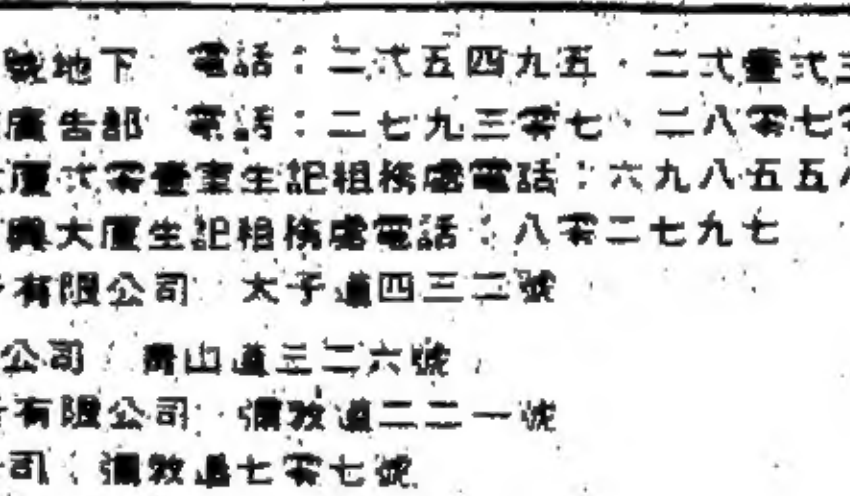 號地下 電話：二弍五四九五・二弍壹弍三
廣告部 電話：二七九三零七・二八零七零
大廈弍零壹室生記租務處電話：六九八五五八
興大廈生記租務處電話：八零二七九七
有限公司 太子道四三二號
公司：青山道三二六號
有限公司：彌敦道二二一號
司：彌敦道七零七號